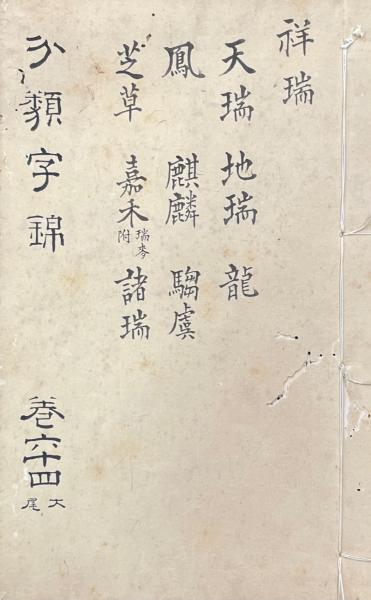 祥瑞
天瑞 地瑞 龍
鳳 麒麟 騶虞
芝草 嘉禾 瑞麥附 諸瑞
分類字錦
卷六十四 大尾